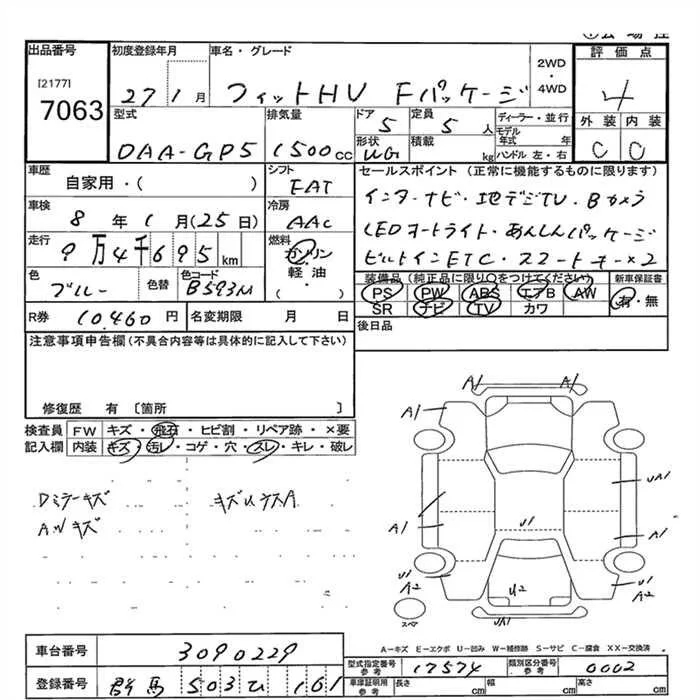 出品番号 初度登録年月 車名・グレード 2WD・4WD 評価点
[2177]
7063
27 1月 フィットHV Fパッケージ 4
型式 排気量 ドア 定員 ディーラー・並行 外装 内装
DAA-GP5 1500cc 5 5人 モデル年式 年 C C
形状 積載 kg ハンドル 左・右
WG
車歴 シフト セールスポイント (正常に機能するものに限ります)
自家用・( ) FAT インターナビ・地デジTV・Bカメラ
車検 冷房 LEDオートライト・あんしんパッケージ
8年1月(25日) AAC ビルトインETC・スマートキー×2
走行 燃料 装備品 (純正品に限り○をつけてください) 新車保証書
9万4千695km ガソリン PS PW ABS エアB AW 有・無
色 色替 色コード 軽油・( ) SR ナビ TV カワ
ブルー B593M
R券 10,460円 名変期限 月 日 後日品
注意事項申告欄 (不具合内容等は具体的に記入して下さい)
修復歴 有 〔箇所 〕
検査員 FW キズ・飛石・ヒビ割・リペア跡・×要
記入欄 内装 キズ・汚レ・コゲ・穴・スレ・キレ・破レ
Dミラーキズ
AWキズ
A1 A1
A1
UA1
A1 U1 A1
U1 A2 U2 U1 A2
スペア UA1
A-キズ E-エクボ U-凹み W-補修跡 S-サビ C-腐食 XX-交換済
車台番号 3090229 型式指定番号 参考 17574 類別区分番号 参考 0002
登録番号 群馬 503 ひ 161 車庫証明用 参考 長さ cm 幅 cm 高さ cm